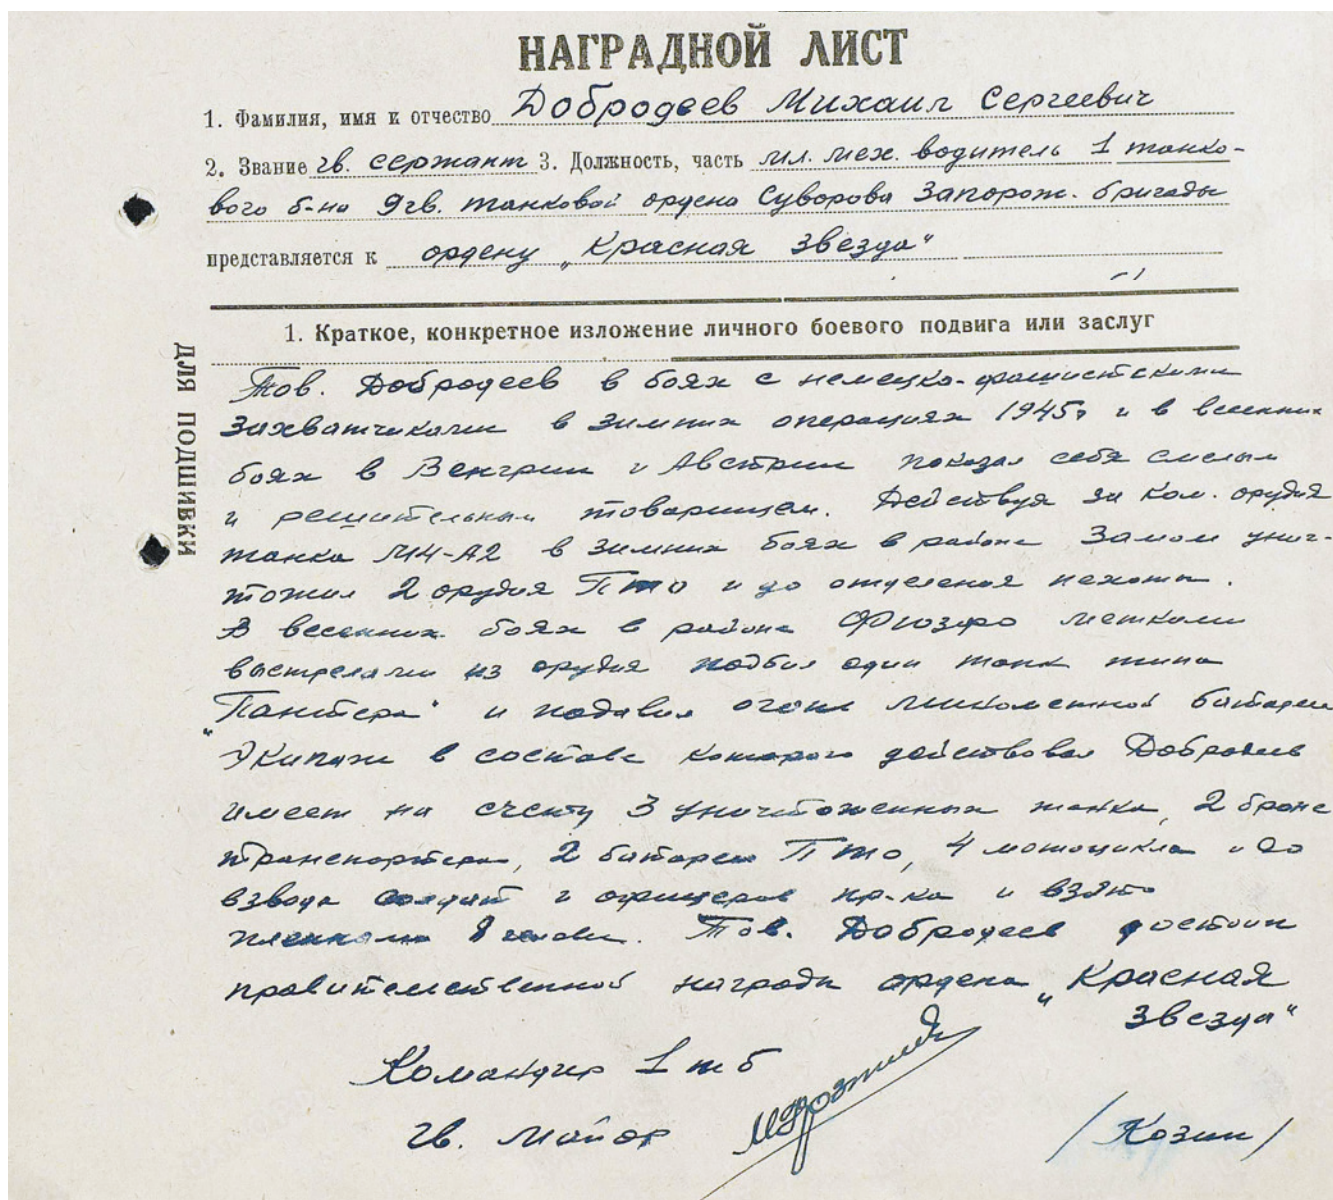 НАГРАДНОЙ ЛИСТ
1. Фамилия, имя и отчество Добродеев Михаил Сергеевич
2. Звание гв. сержант 3. Должность, часть мл. мех. водитель 1 танко-
вого б-на 9 гв. танковой ордена Суворова Запорож. бригады
представляется к ордену „Красная Звезда"
1. Краткое, конкретное изложение личного боевого подвига или заслуг
ДЛЯ ПОДШИВКИ
Тов. Добродеев в боях с немецко-фашистскими
захватчиками в зимних операциях 1945г и в весенних
боях в Венгрии и Австрии показал себя смелым
и решительным товарищем. Действуя за ком. орудия
танка М4-А2 в зимних боях в районе Замои унич-
тожил 2 орудия ПТО и до отделения пехоты.
В весенних боях в районе меткими
выстрелами из орудия подбил один танк типа
„Пантера" и подавил огонь батареи
Экипаж в составе которого действовал Добродеев
имеет на счету 3 уничтоженных танка, 2 броне
транспортера, 2 батареи ПТО, 4 мотоцикла и до
взвода солдат и офицеров пр-ка и взято
пленными 8 человек. Тов. Добродеев достоин
правительственной награды ордена „Красная
Звезда"
Командир 1 тб
гв. Майор /Козин/